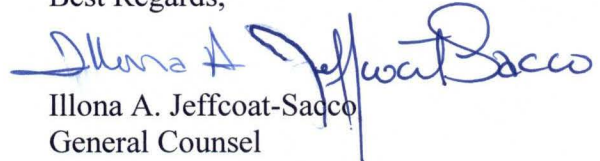 Best Regards,
Illona A Jeffcoat-Sacco
Illona A. Jeffcoat-Sacco
General Counsel